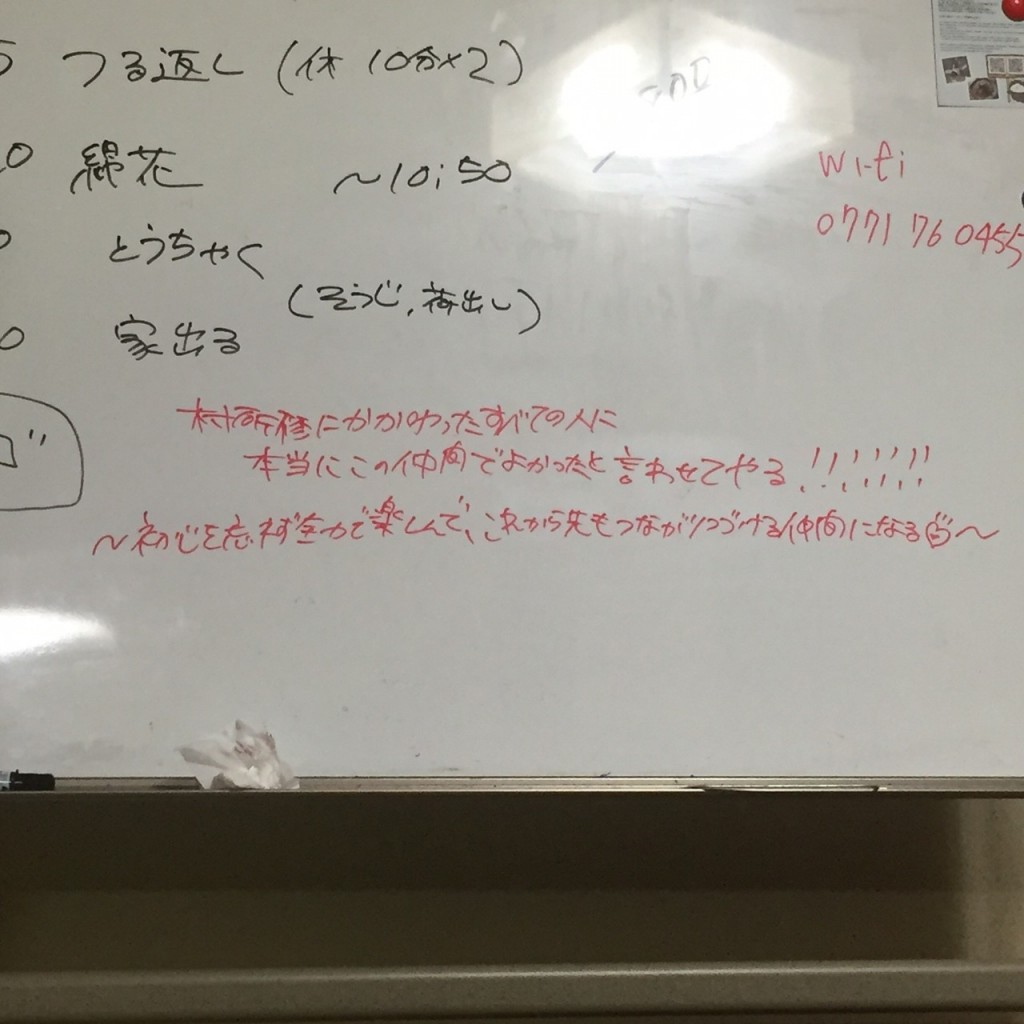 5 つる返し (休 10分×2)
0 綿花 ~10:50
0 とうちゃく
(そうじ、荷出し)
0 家出る
wi-fi
0771 76 0455
村研修にかかわったすべての人に
本当にこの仲間でよかったと言わせてやる!!!!!!!
~初心を忘れず全力で楽しんで、これから先もつながりつづける仲間になる~